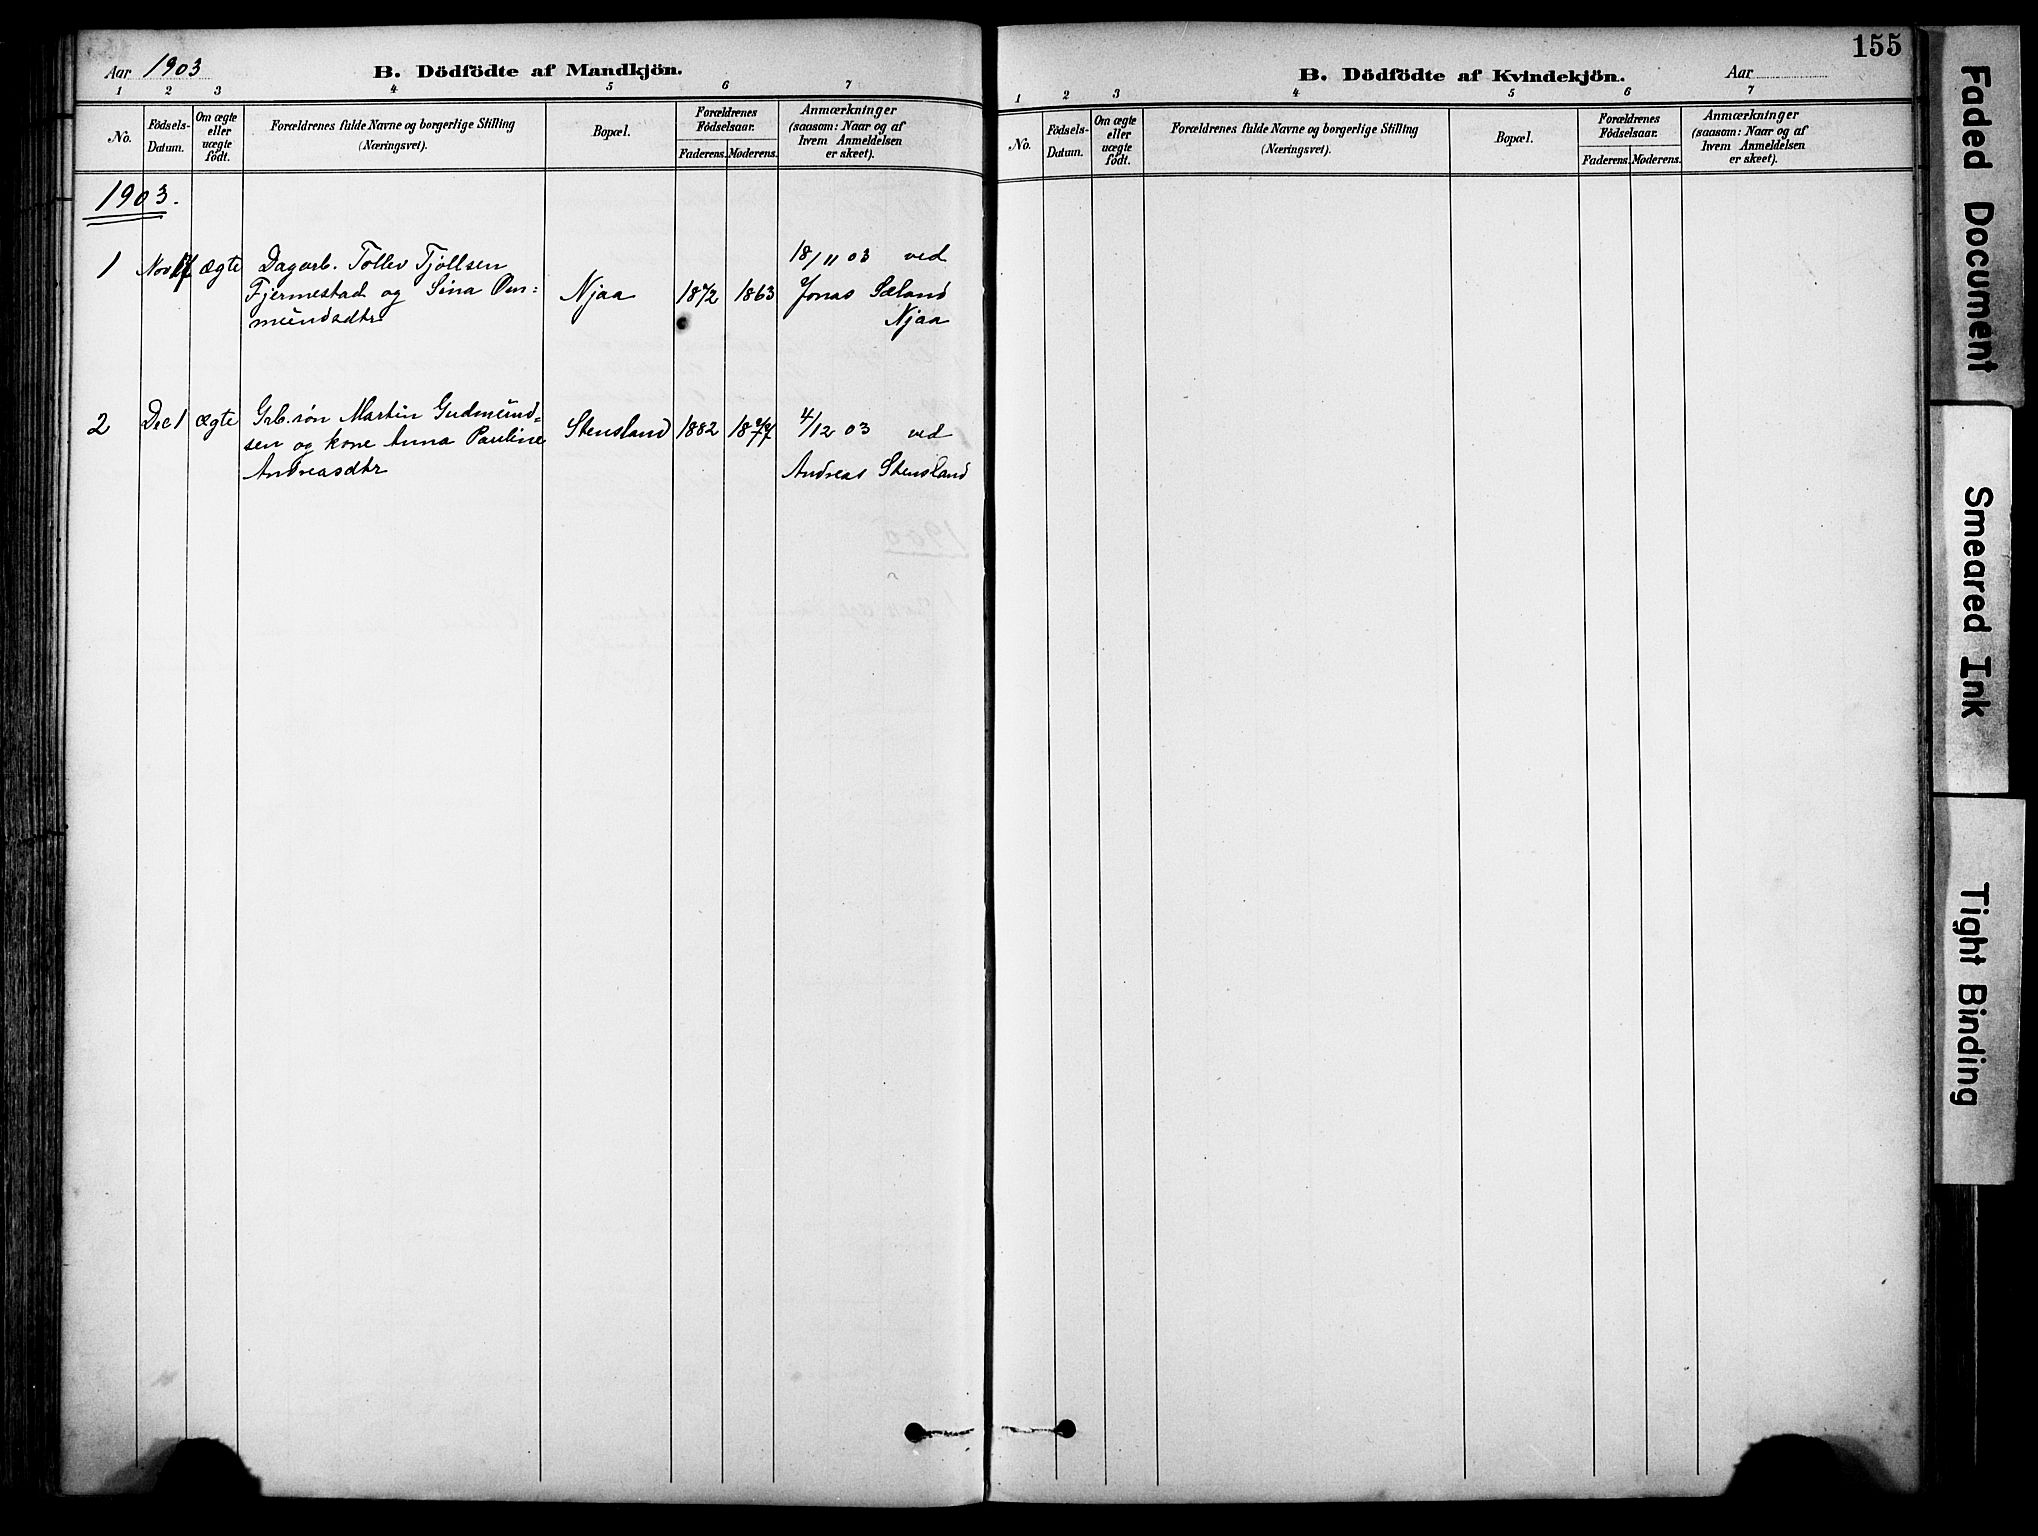 Aar 1903
B. Dödfödte af Mandkjön.
1 2 3 4 5 6 7
No.
Födsels-
Datum.
Om ægte
eller
uægte
födt.
Forældrenes fulde Navne og borgerlige Stilling
(Næringsvei).
Bopæl.
Forældrenes
Födselsaar.
Faderens. Moderens.
Anmærkninger
(saasom: Naar og af
hvem Anmeldelsen
er skeet).
1903.
1 Nov 17 ægte Dagarb. Tollev Tjöllsen
Fjermestad og Sina Om-
mundsdtr
Njaa 1872 1863
18/11 03 ved
Jonas Sæland
Njaa
2 Dec 1 ægte Grb.sön Martin Gudmund-
sen og kone Anna Pauline
Andreasdtr
Stensland 1882 1877
4/12 03 ved
Andreas Stensland
155
B. Dödfödte af Kvindekjön.
Aar
1 2 3 4 5 6 7
No.
Födsels-
Datum.
Om ægte
eller
uægte
födt.
Forældrenes fulde Navne og borgerlige Stilling
(Næringsvei).
Bopæl.
Forældrenes
Födselsaar.
Faderens. Moderens.
Anmærkninger
(saasom: Naar og af
hvem Anmeldelsen
er skeet).
Faded Document
Smeared Ink
Tight Binding